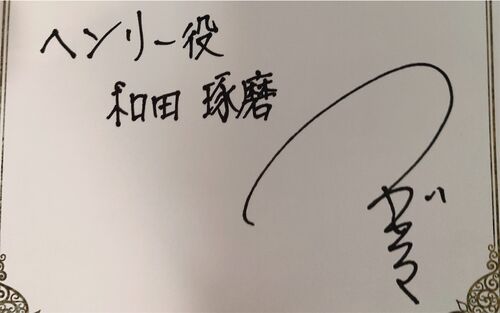 ヘンリー役
和田 琢磨